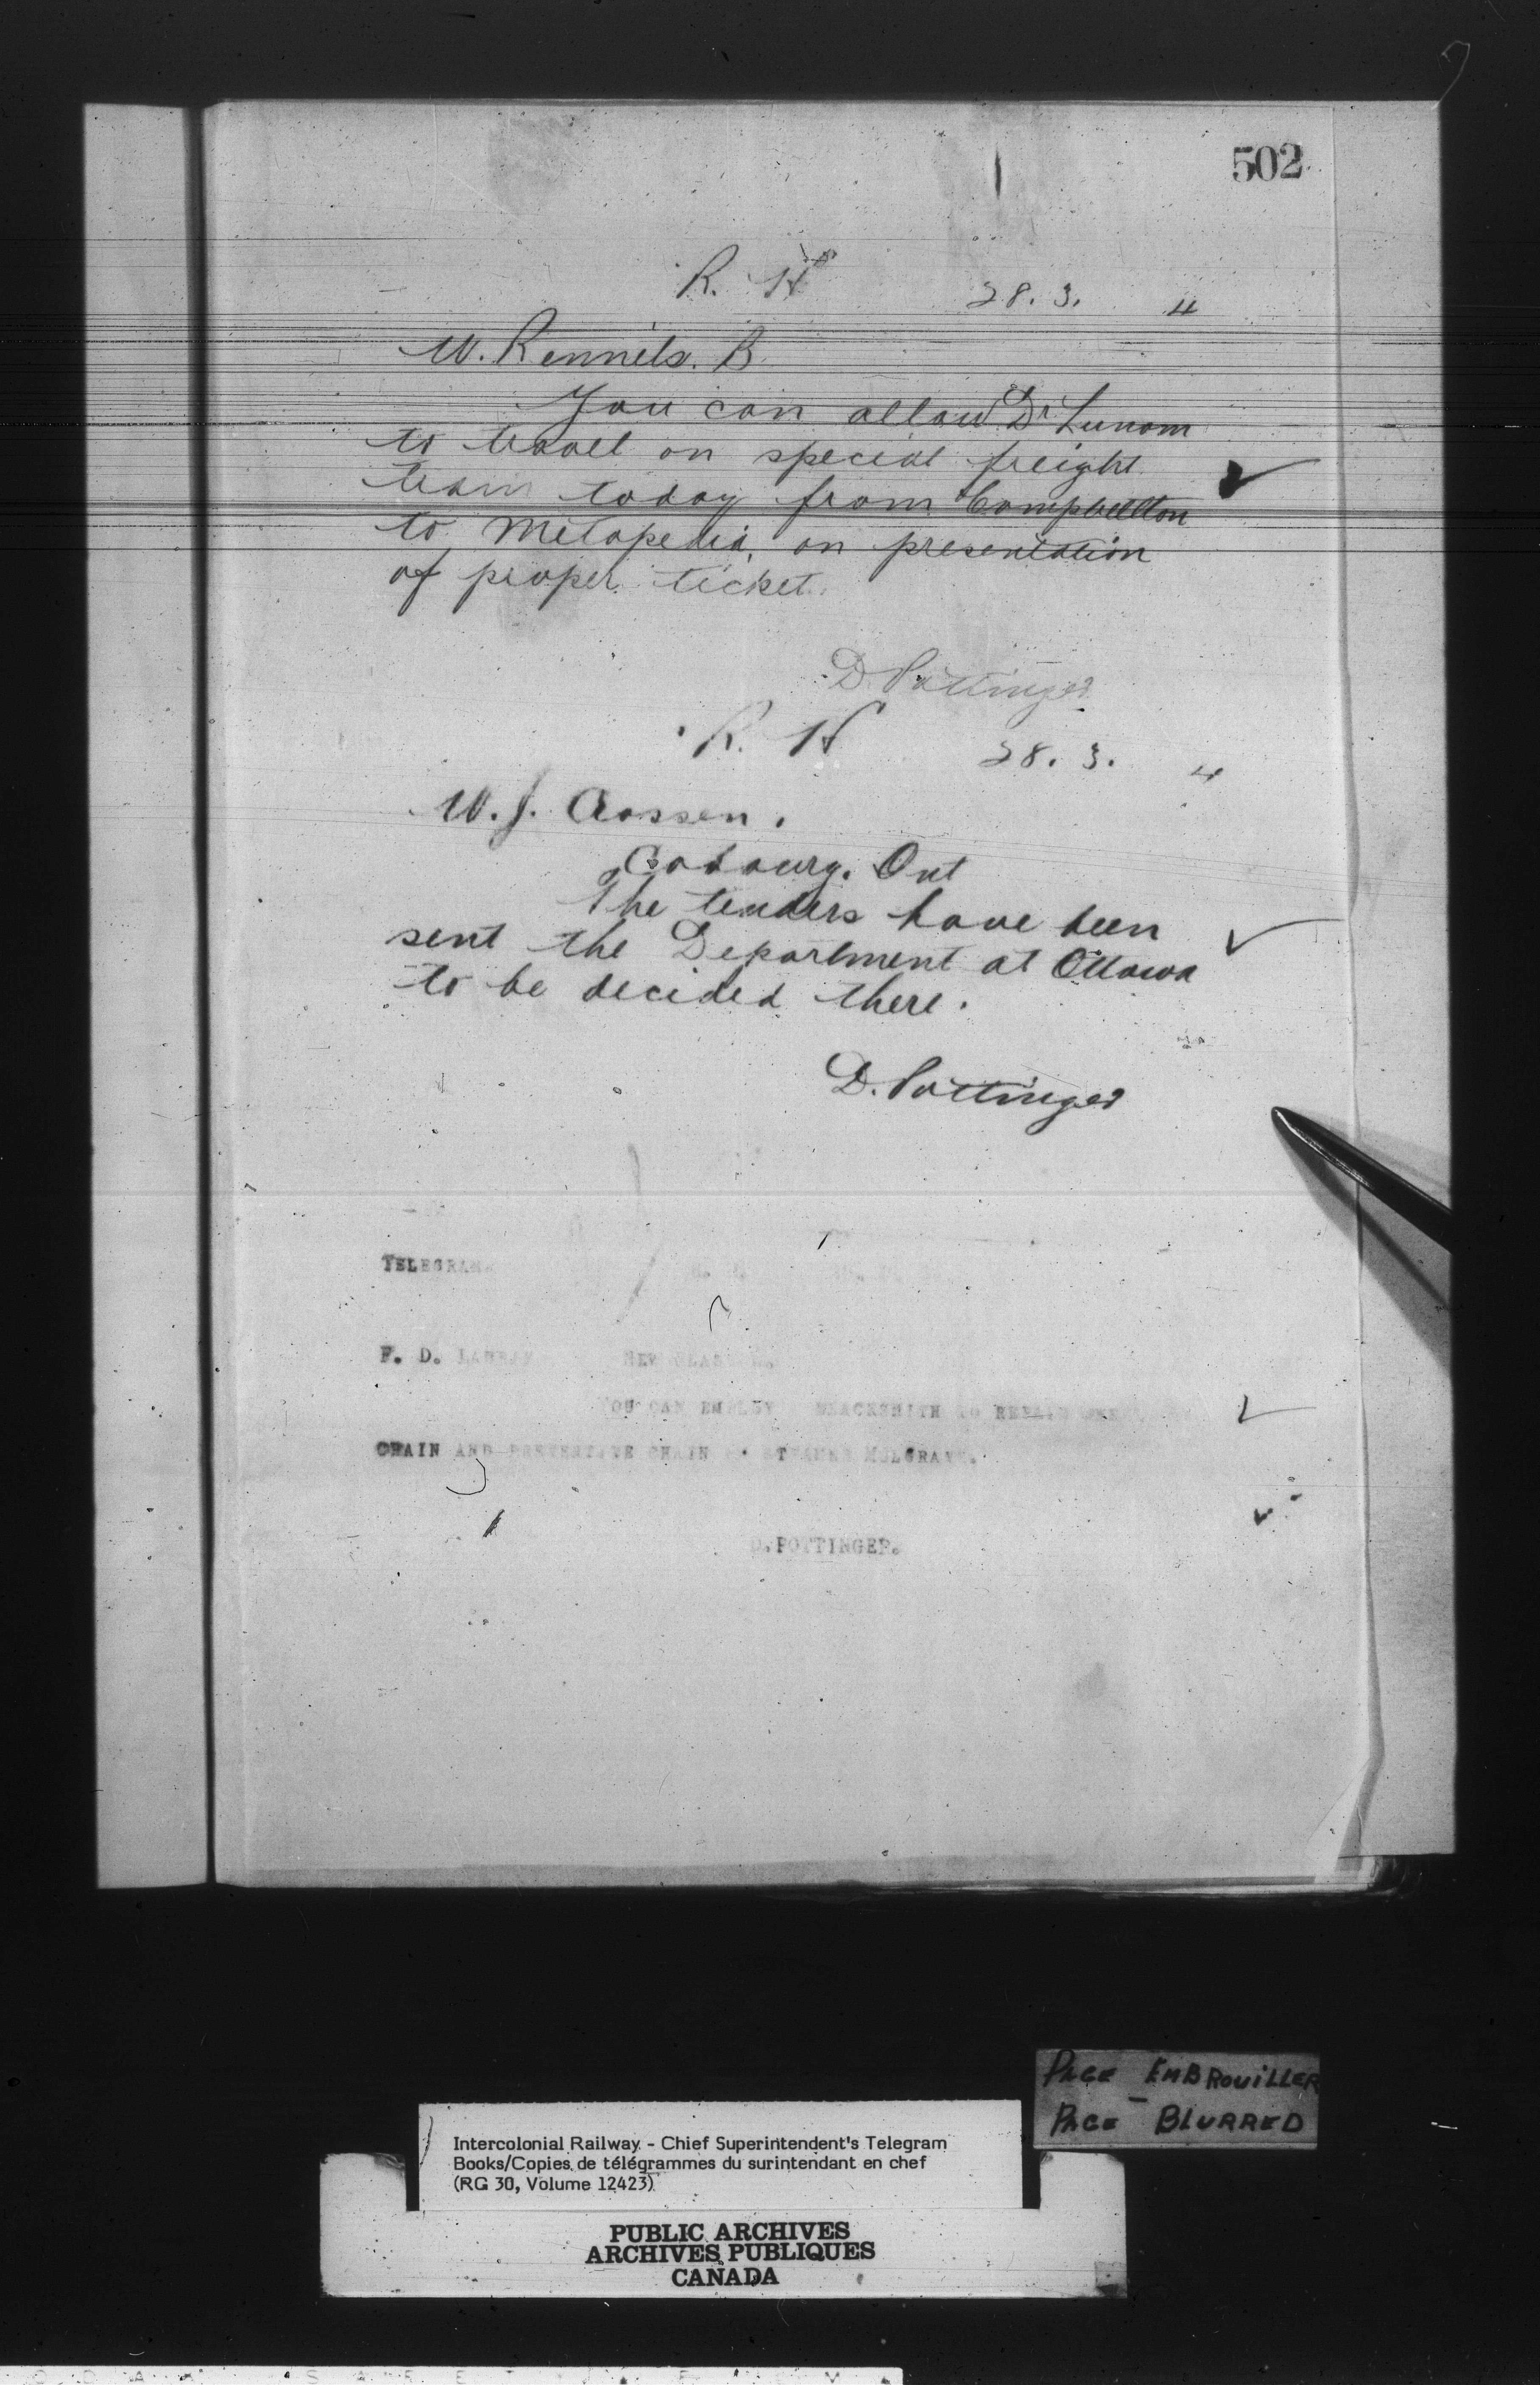 502
R. H 28. 3. 4
W. Rennels. B
You can allow Dr Lunam
to travel on special freight
train today from Campbellton
to Metapedia, on presentation
of proper ticket.
D. Pottinger
R. H 28. 3. 4
W. J. Crossen.
Cobourg. Ont
The tenders have been
sent the Department at Ottawa
to be decided there.
D. Pottinger
TELEGRAM.
F. D. NEW GLASGOW.
YOU CAN EMPLOY BLACKSMITH TO REPAIR
CHAIN AND CHAIN STEAMER MULGRAVE.
D. POTTINGER.
PAGE EMBROUILLER
PAGE - BLURRED
Intercolonial Railway - Chief Superintendent's Telegram
Books/Copies de télégrammes du surintendant en chef
(RG 30, Volume 12423)
PUBLIC ARCHIVES
ARCHIVES PUBLIQUES
CANADA